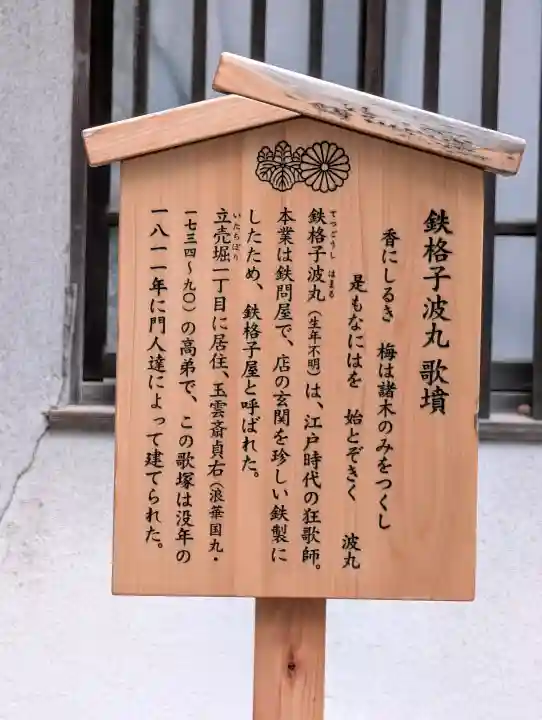 鉄格子波丸 歌墳
香にしるき 梅は諸木のみをつくし
是もなにはを 始とぞきく 波丸
鉄格子波丸（生年不明）は、江戸時代の狂歌師。
てつごうし はまる
本業は鉄問屋で、店の玄関を珍しい鉄製に
したため、鉄格子屋と呼ばれた。
立売堀一丁目に居住、玉雲斎貞右（浪華国丸・
いたちぼり
一七三四〜九〇）の高弟で、この歌塚は没年の
一八一一年に門人達によって建てられた。